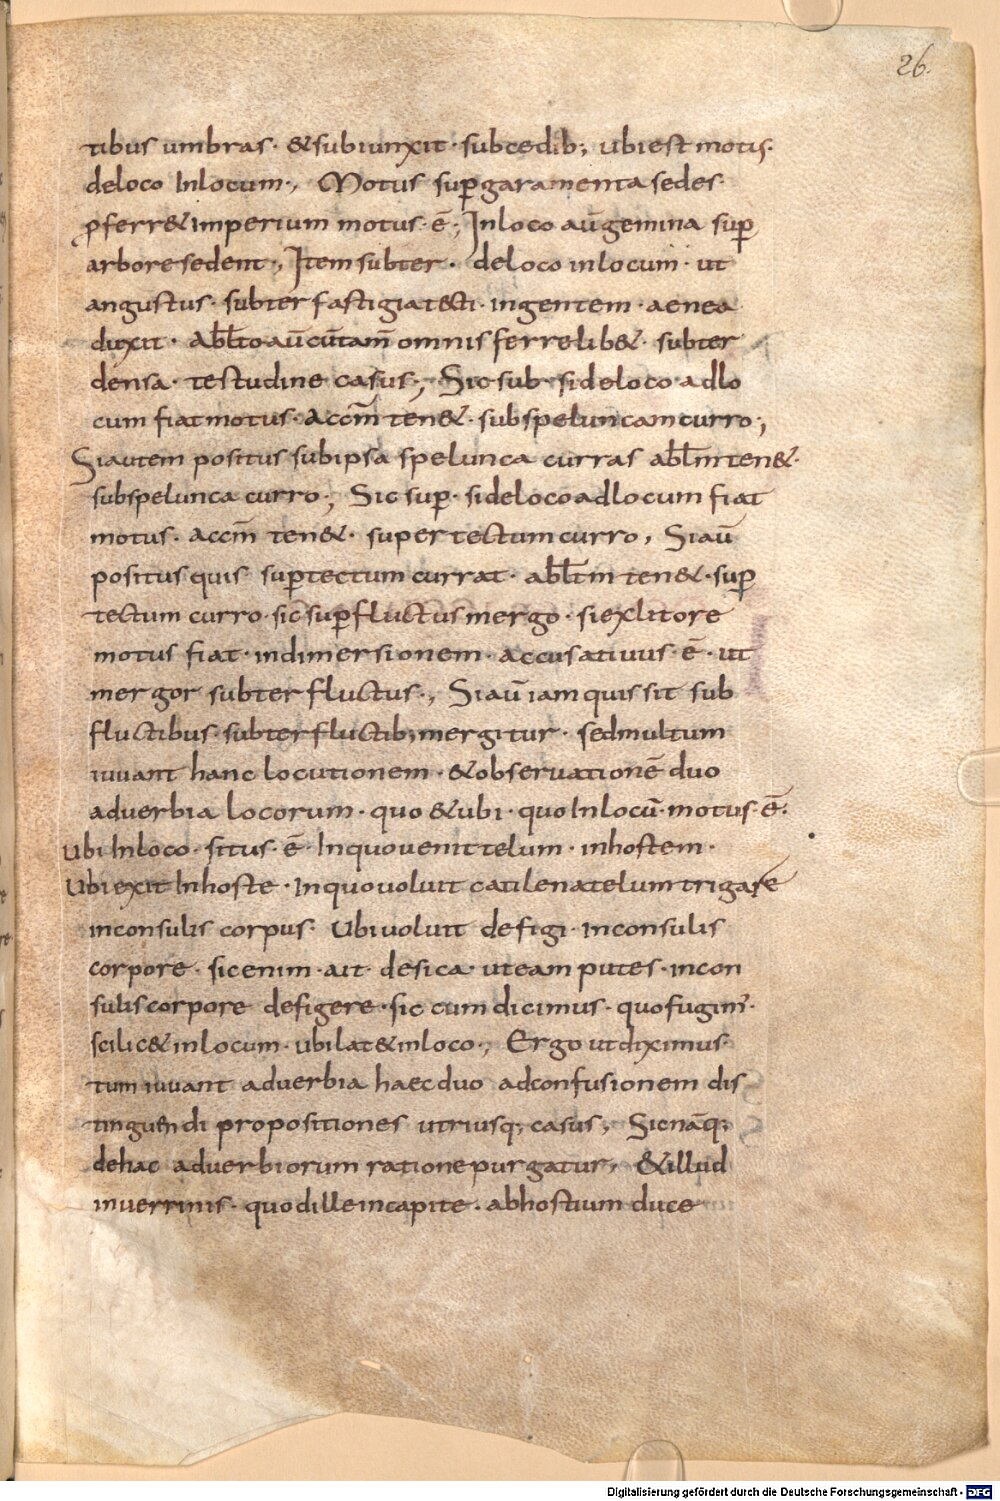 26.
tibus umbras · &subiunxit · subcedib; ubi est motis·
deloco Inlocum·, Motus sup̄garamenta sedes·
ꝓferr& imperium motus · ē; Inloco aūgemina sup̄
arboresedent·, Item subter · deloco inlocum · ut
angustus · subter fastigiatecti · ingentem · aenea
duxit · abl̄to aū cūtam̄ omnis ferrelib& · subter
densa · testudine casus·, Sicsub sideloco adlo
cum fiat motus · accm̄ ten& · subspeluncam curro;
Siautem positus subipsa spelunca curras abl̄m ten&·
subspelunca curro·, Sic sup̄ · sideloco adlocum fiat
motus · accm̄ ten& · super tectum curro, Siaū
positus quis sup̄tectum currat · abl̄tm ten& · sup̄
tectum curro · sic sup̄fluctus mergo · siexlitore
motus fiat · indimersionem · accusativus · ē · ut
mergor subter fluctus·, Siaū iam quis sit sub
fluctibus · subter fluctib; mergitur · sedmultum
iuvant hanc locutionem · &observationē duo
adverbia locorum · quo &ubi · quo Inlocū · motus · ē:
Ubi Inloco · situs · ē · Inquovenit telum · inhostem ·
Ubi exit Inhoste · Inquovoluit catilenatelum trigare
inconsulis corpus · Ubi voluit defigi · inconsulis
corpore · sicenim · ait · desica · uteam putes · incon
suliscorpore defigere · sic cum dicimus · quofugim̄·
scilic& inlocum · ubilat& inloco·, Ergo utdiximus·
tum iuvant adverbia haec duo adconfusionem dis
tinguendi propositiones utriusq; casus, Sicnāq;
dehac adverbiorum rationepurgatur, &illud
inverrinis · quodilleincapite · abhostium duce
Digitalisierung gefördert durch die Deutsche Forschungsgemeinschaft - DFG